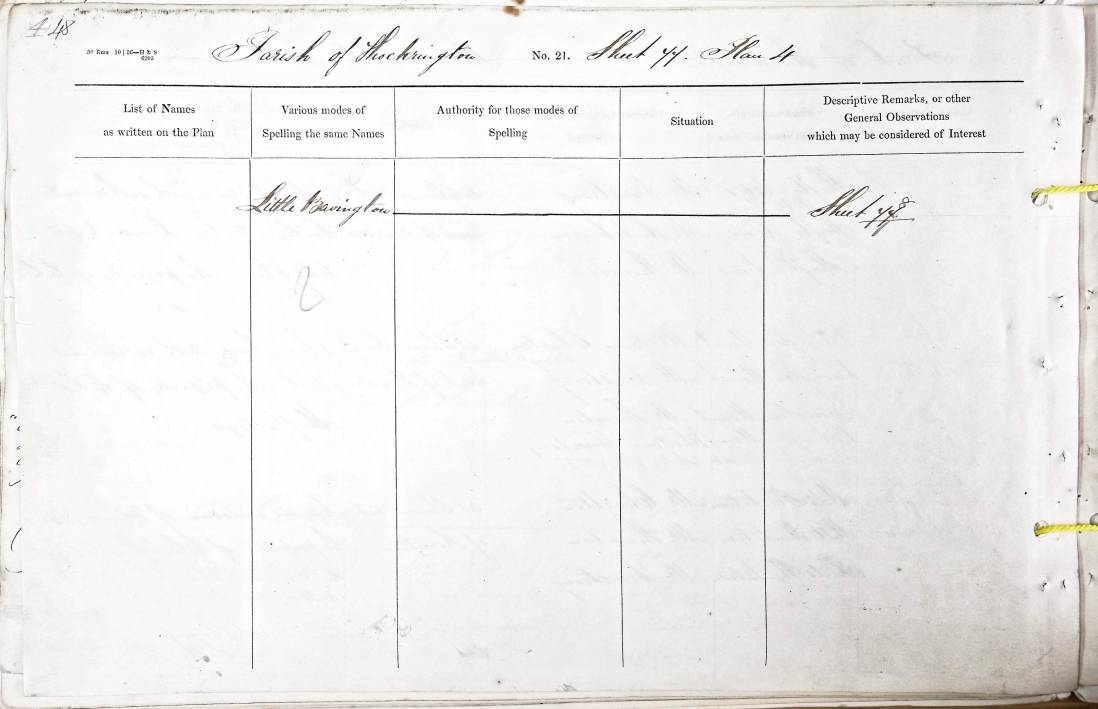 48
50 Rms 10 | 56—H & S
6205
Parish of Thockrington No. 21. Sheet 77. Plan 4
List of Names
as written on the Plan
Various modes of
Spelling the same Names
Authority for those modes of
Spelling
Situation
Descriptive Remarks, or other
General Observations
which may be considered of Interest
Little Bavington
Sheet 77.8
2